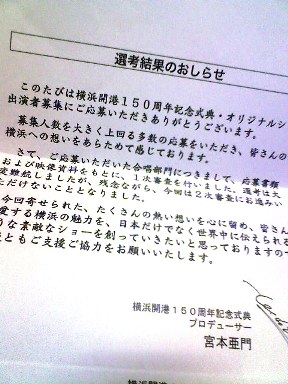 選考結果のおしらせ
このたびは横浜開港１５０周年記念式典・オリジナルシ
出演者募集にご応募いただきありがとうございます。
募集人数を大きく上回る多数の応募をいただき、皆さんの
横浜への想いをあらためて感じております。
さて、ご応募いただいた合唱部門につきまして、応募書類
および映像資料をもとに、１次審査を行いました。選考は大
変難航しましたが、残念ながら、今回は２次審査にお進みい
ただけないこととなりました。
今回寄せられた、たくさんの熱い想いを心に留め、皆さん
愛する横浜の魅力を、日本だけでなく世界中に伝えられる
うな素敵なショーを創っていきたいと思っておりますので
ともご支援ご協力をお願いいたします。
横浜開港１５０周年記念式典
プロデューサー
宮本亜門